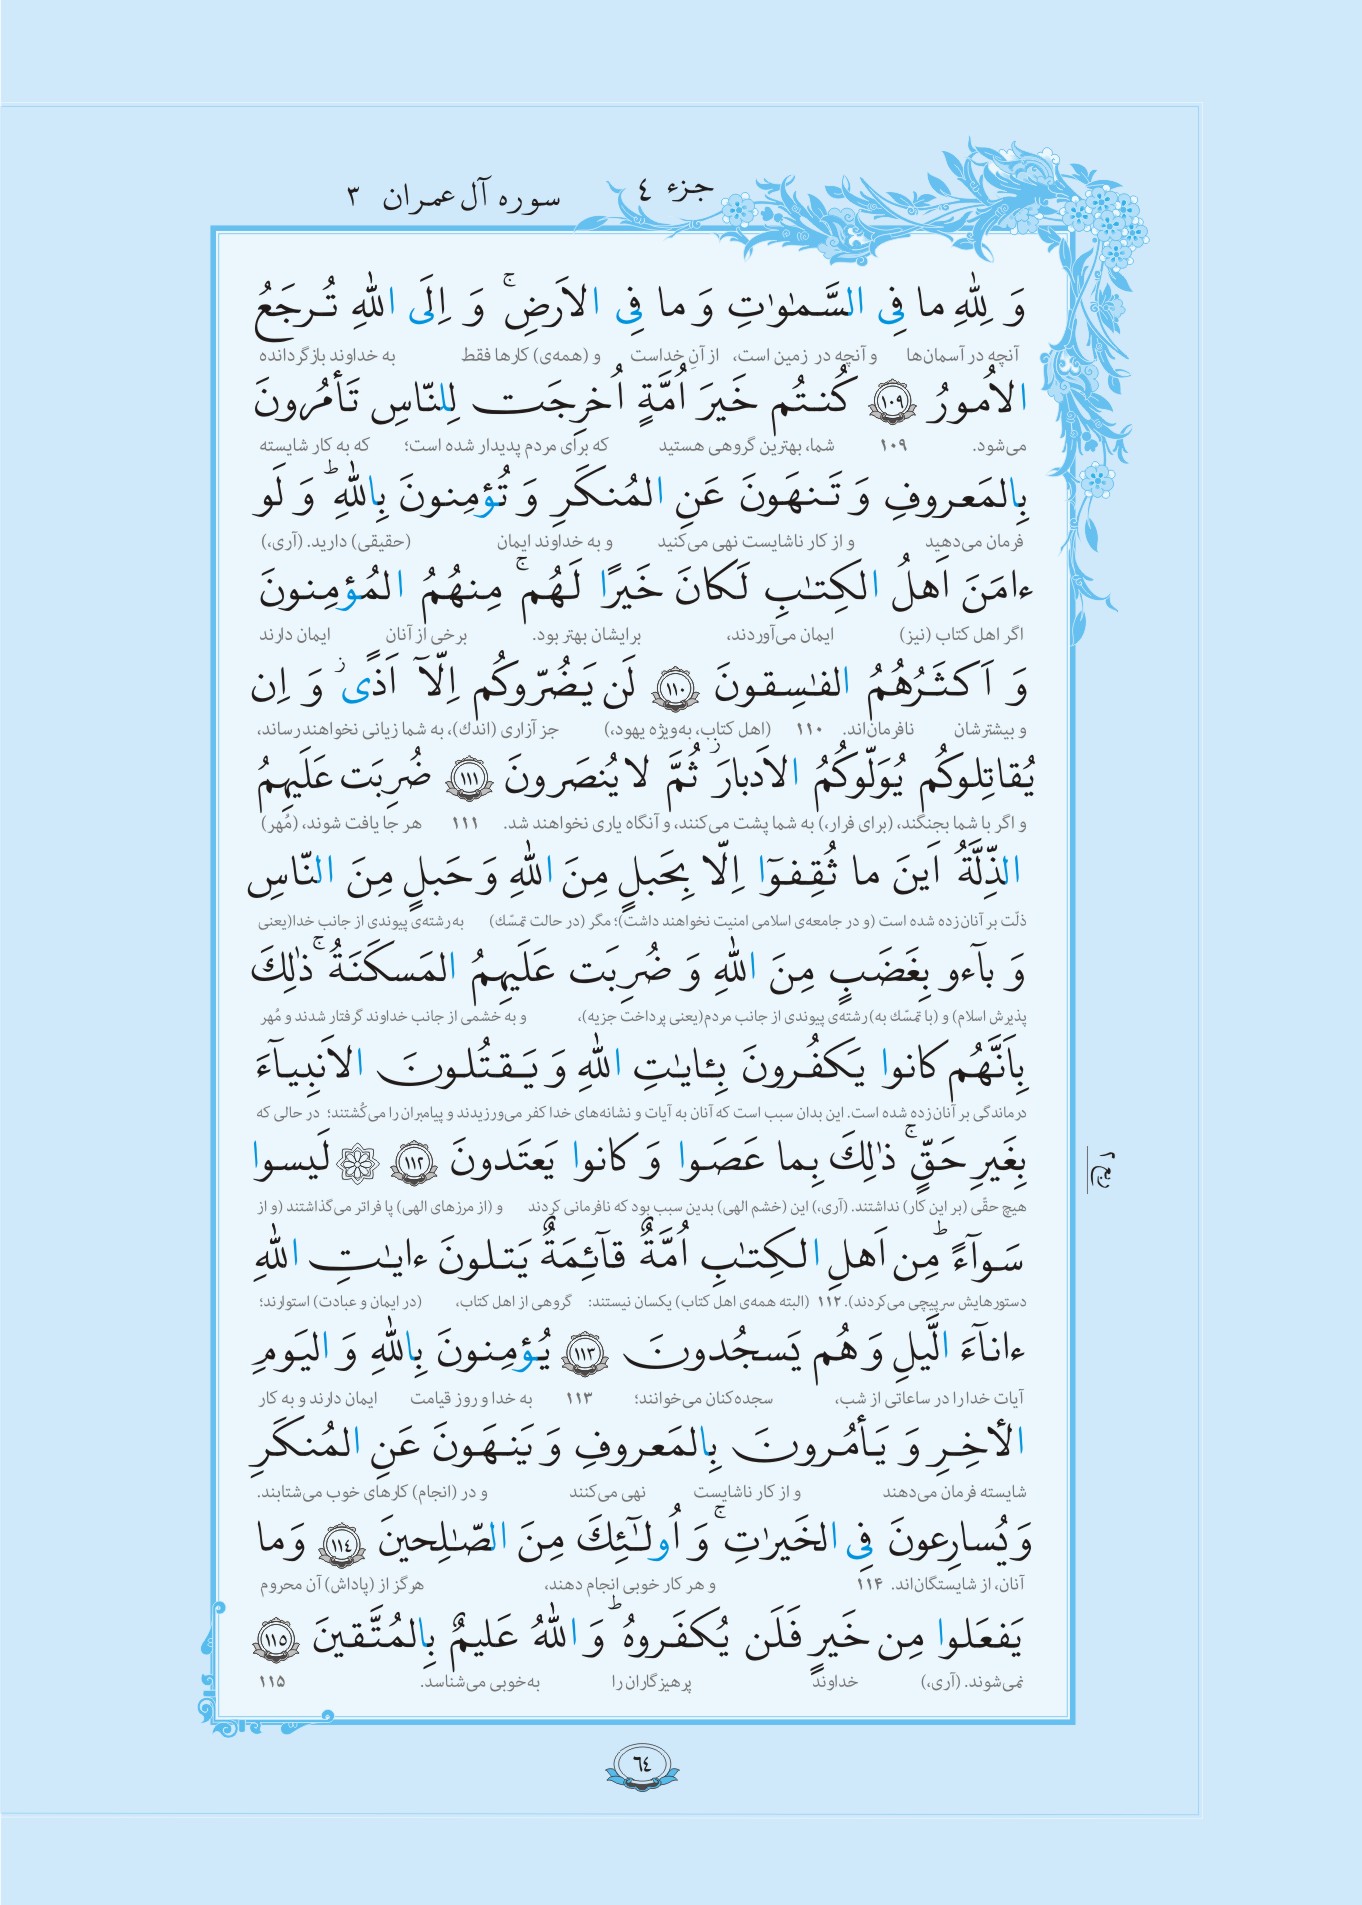 جزء ٤
سوره آل عمران ٣
وَ لِلّٰهِ ما فِى السَّمٰوٰتِ وَ ما فِى الاَرضِ ۚ وَ اِلَى اللّٰهِ تُرجَعُ
آنچه در آسمان‌ها و آنچه در زمین است، از آنِ خداست و (همه‌ی) کارها فقط به خداوند بازگردانده
الاُمورُ ﴿١٠٩﴾ كُنتُم خَيرَ اُمَّةٍ اُخرِجَت لِلنّاسِ تَأمُرونَ
می‌شود. ۱۰۹ شما، بهترین گروهی هستید که برای مردم پدیدار شده است؛ که به کار شایسته
بِالمَعروفِ وَ تَنهَونَ عَنِ المُنكَرِ وَ تُؤمِنونَ بِاللّٰهِ ؕ وَ لَو
فرمان می‌دهید و از کار ناشایست نهی می‌کنید و به خداوند ایمان (حقیقی) دارید. (آری،)
ءامَنَ اَهلُ الكِتٰبِ لَكانَ خَيرًا لَهُم ۚ مِنهُمُ المُؤمِنونَ
اگر اهل کتاب (نیز) ایمان می‌آوردند، برایشان بهتر بود. برخی از آنان ایمان دارند
وَ اَكثَرُهُمُ الفٰسِقونَ ﴿١١٠﴾ لَن يَضُرّوكُم اِلّآ اَذًى ز وَ اِن
و بیشترشان نافرمان‌اند. ۱۱۰ (اهل کتاب، به‌ویژه یهود،) جز آزاری (اندك)، به شما زیانی نخواهند رساند،
يُقاتِلوكُم يُوَلّوكُمُ الاَدبارَ ز ثُمَّ لا يُنصَرونَ ﴿١١١﴾ ضُرِبَت عَلَيهِمُ
و اگر با شما بجنگند، (برای فرار،) به شما پشت می‌کنند، و آنگاه یاری نخواهند شد. ۱۱۱ هر جا یافت شوند، (مُهر)
الذِّلَّةُ اَينَ ما ثُقِفوٓا اِلّا بِحَبلٍ مِنَ اللّٰهِ وَ حَبلٍ مِنَ النّاسِ
ذلّت بر آنان زده شده است (و در جامعه‌ی اسلامی امنیت نخواهند داشت)؛ مگر (در حالت تمسّك) به رشته‌ی پیوندی از جانب خدا(یعنی
وَ بآءو بِغَضَبٍ مِنَ اللّٰهِ وَ ضُرِبَت عَلَيهِمُ المَسكَنَةُ ۚ ذٰلِكَ
پذیرش اسلام) و (با تمسّك به) رشته‌ی پیوندی از جانب مردم(یعنی پرداخت جزیه)، و به خشمی از جانب خداوند گرفتار شدند و مُهر
بِاَنَّهُم كانوا يَكفُرونَ بِـٔايٰتِ اللّٰهِ وَ يَقتُلونَ الاَنبِيآءَ
درماندگی بر آنان زده شده است. این بدان سبب است که آنان به آیات و نشانه‌های خدا کفر می‌ورزیدند و پیامبران را می‌کُشتند؛ در حالی که
بِغَيرِ حَقٍّ ۚ ذٰلِكَ بِما عَصَوا وَ كانوا يَعتَدونَ ﴿١١٢﴾ لَيسوا
هیچ حقّی (بر این کار) نداشتند. (آری،) این (خشم الهی) بدین سبب بود که نافرمانی کردند و (از مرزهای الهی) پا فراتر می‌گذاشتند (و از
سَوآءً ؕ مِن اَهلِ الكِتٰبِ اُمَّةٌ قآئِمَةٌ يَتلونَ ءايٰتِ اللّٰهِ
دستورهایش سرپیچی می‌کردند). ۱۱۲ (البته همه‌ی اهل کتاب) یکسان نیستند: گروهی از اهل کتاب، (در ایمان و عبادت) استوارند؛
ءانآءَ الَّيلِ وَ هُم يَسجُدونَ ﴿١١٣﴾ يُؤمِنونَ بِاللّٰهِ وَ اليَومِ
آیات خدا را در ساعاتی از شب، سجده‌کنان می‌خوانند؛ ۱۱۳ به خدا و روز قیامت ایمان دارند و به کار
الأخِرِ وَ يَأمُرونَ بِالمَعروفِ وَ يَنهَونَ عَنِ المُنكَرِ
شایسته فرمان می‌دهند و از کار ناشایست نهی می‌کنند و در (انجام) کارهای خوب می‌شتابند.
وَ يُسارِعونَ فِى الخَيرٰتِ ۚ وَ اُولٰٓئِكَ مِنَ الصّٰلِحينَ ﴿١١٤﴾ وَ ما
آنان، از شایستگان‌اند. ۱۱۴ و هر کار خوبی انجام دهند، هرگز از (پاداش) آن محروم
يَفعَلوا مِن خَيرٍ فَلَن يُكفَروهُ ؕ وَ اللّٰهُ عَليمٌ بِالمُتَّقينَ ﴿١١٥﴾
نمی‌شوند. (آری،) خداوند پرهیزگاران را به‌خوبی می‌شناسد. ۱۱۵
٦٤